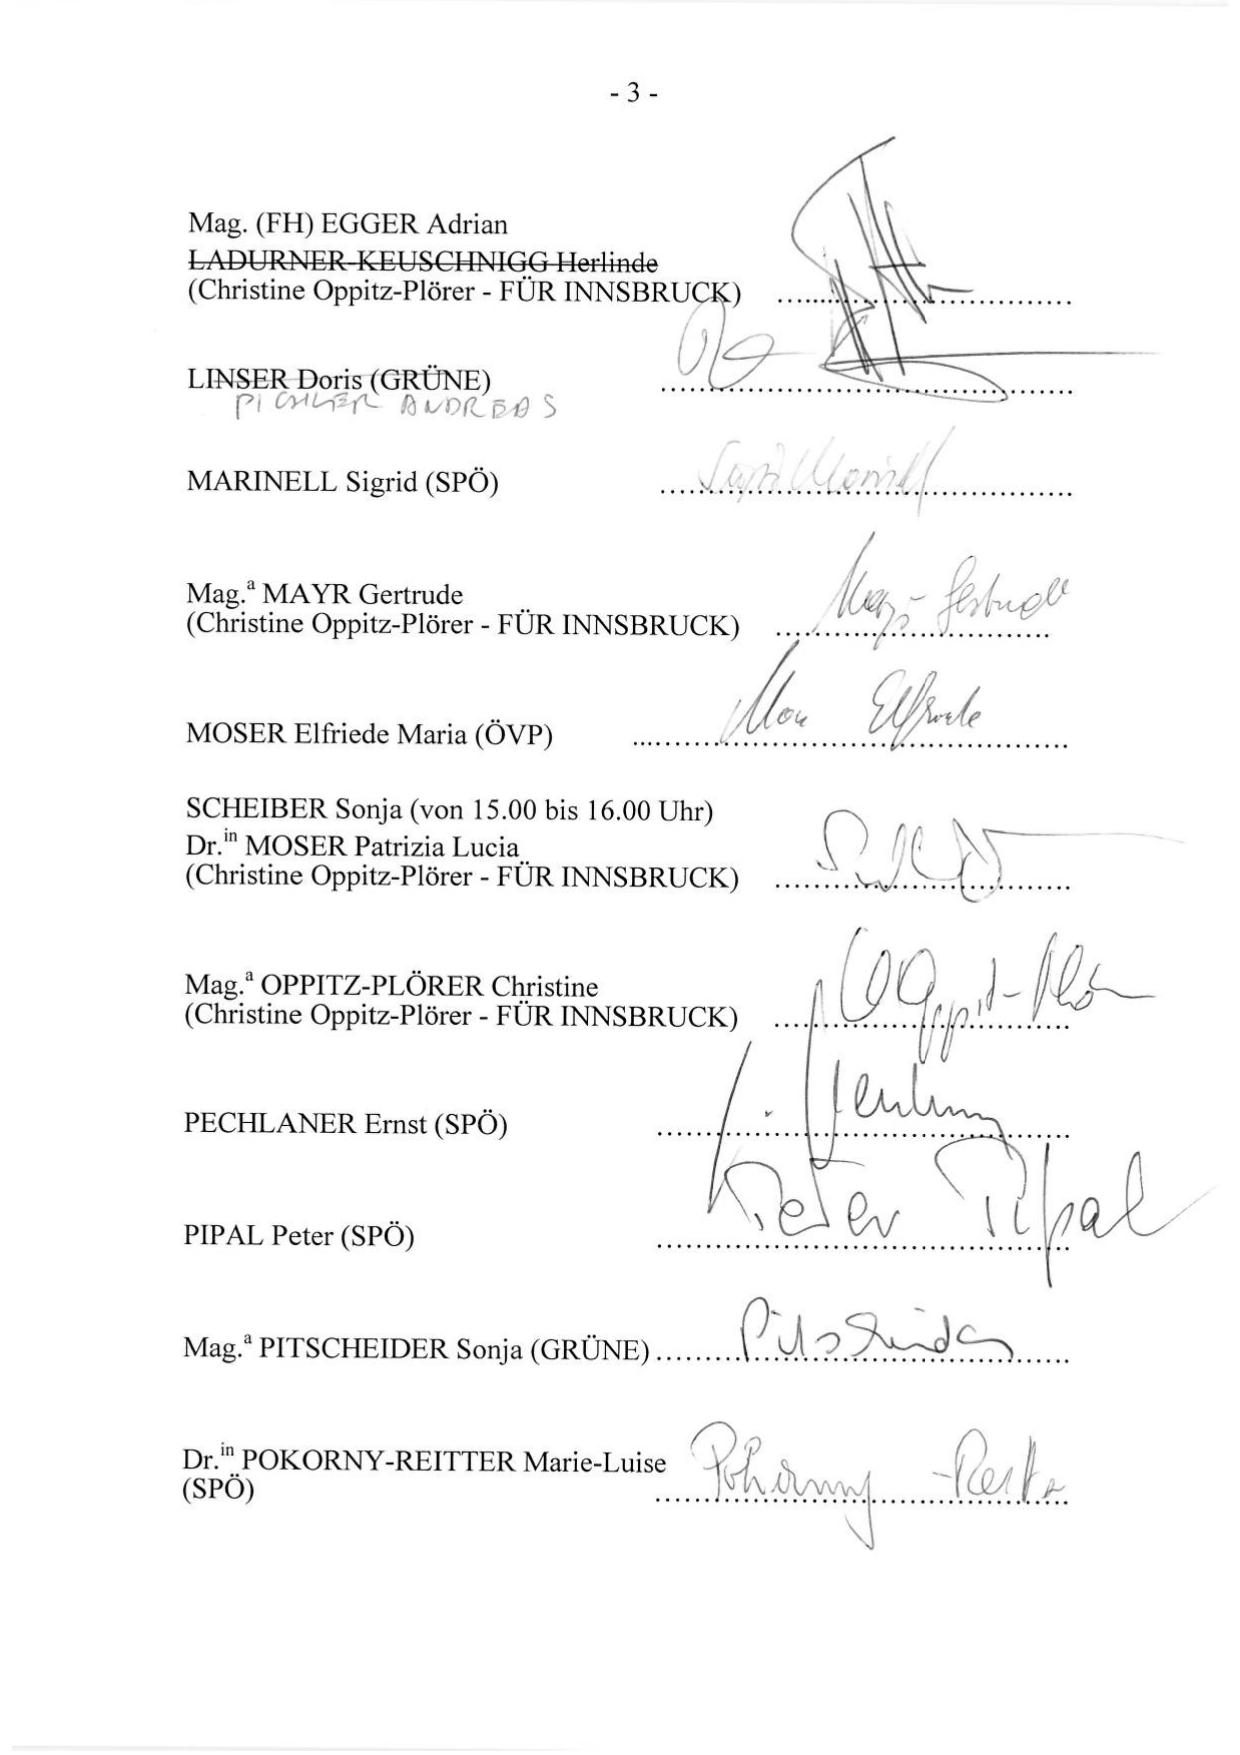 - 3 -
Mag. (FH) EGGER Adrian
LADURNER-KEUSCHNIGG Herlinde
(Christine Oppitz-Plörer - FÜR INNSBRUCK) ..............................
LINSER Doris (GRÜNE) ..............................
PICHLER ANDREAS
MARINELL Sigrid (SPÖ) Sigrid Marinell
Mag.ª MAYR Gertrude Mayr Gertrude
(Christine Oppitz-Plörer - FÜR INNSBRUCK) ..............................
MOSER Elfriede Maria (ÖVP) Moser Elfriede
SCHEIBER Sonja (von 15.00 bis 16.00 Uhr)
Dr.in MOSER Patrizia Lucia
(Christine Oppitz-Plörer - FÜR INNSBRUCK) ..............................
Mag.ª OPPITZ-PLÖRER Christine Oppitz-Plörer
(Christine Oppitz-Plörer - FÜR INNSBRUCK) ..............................
PECHLANER Ernst (SPÖ) ..............................
PIPAL Peter (SPÖ) Peter Pipal
Mag.ª PITSCHEIDER Sonja (GRÜNE) Pitscheider
Dr.in POKORNY-REITTER Marie-Luise Pokorny-Reitter
(SPÖ) ..............................